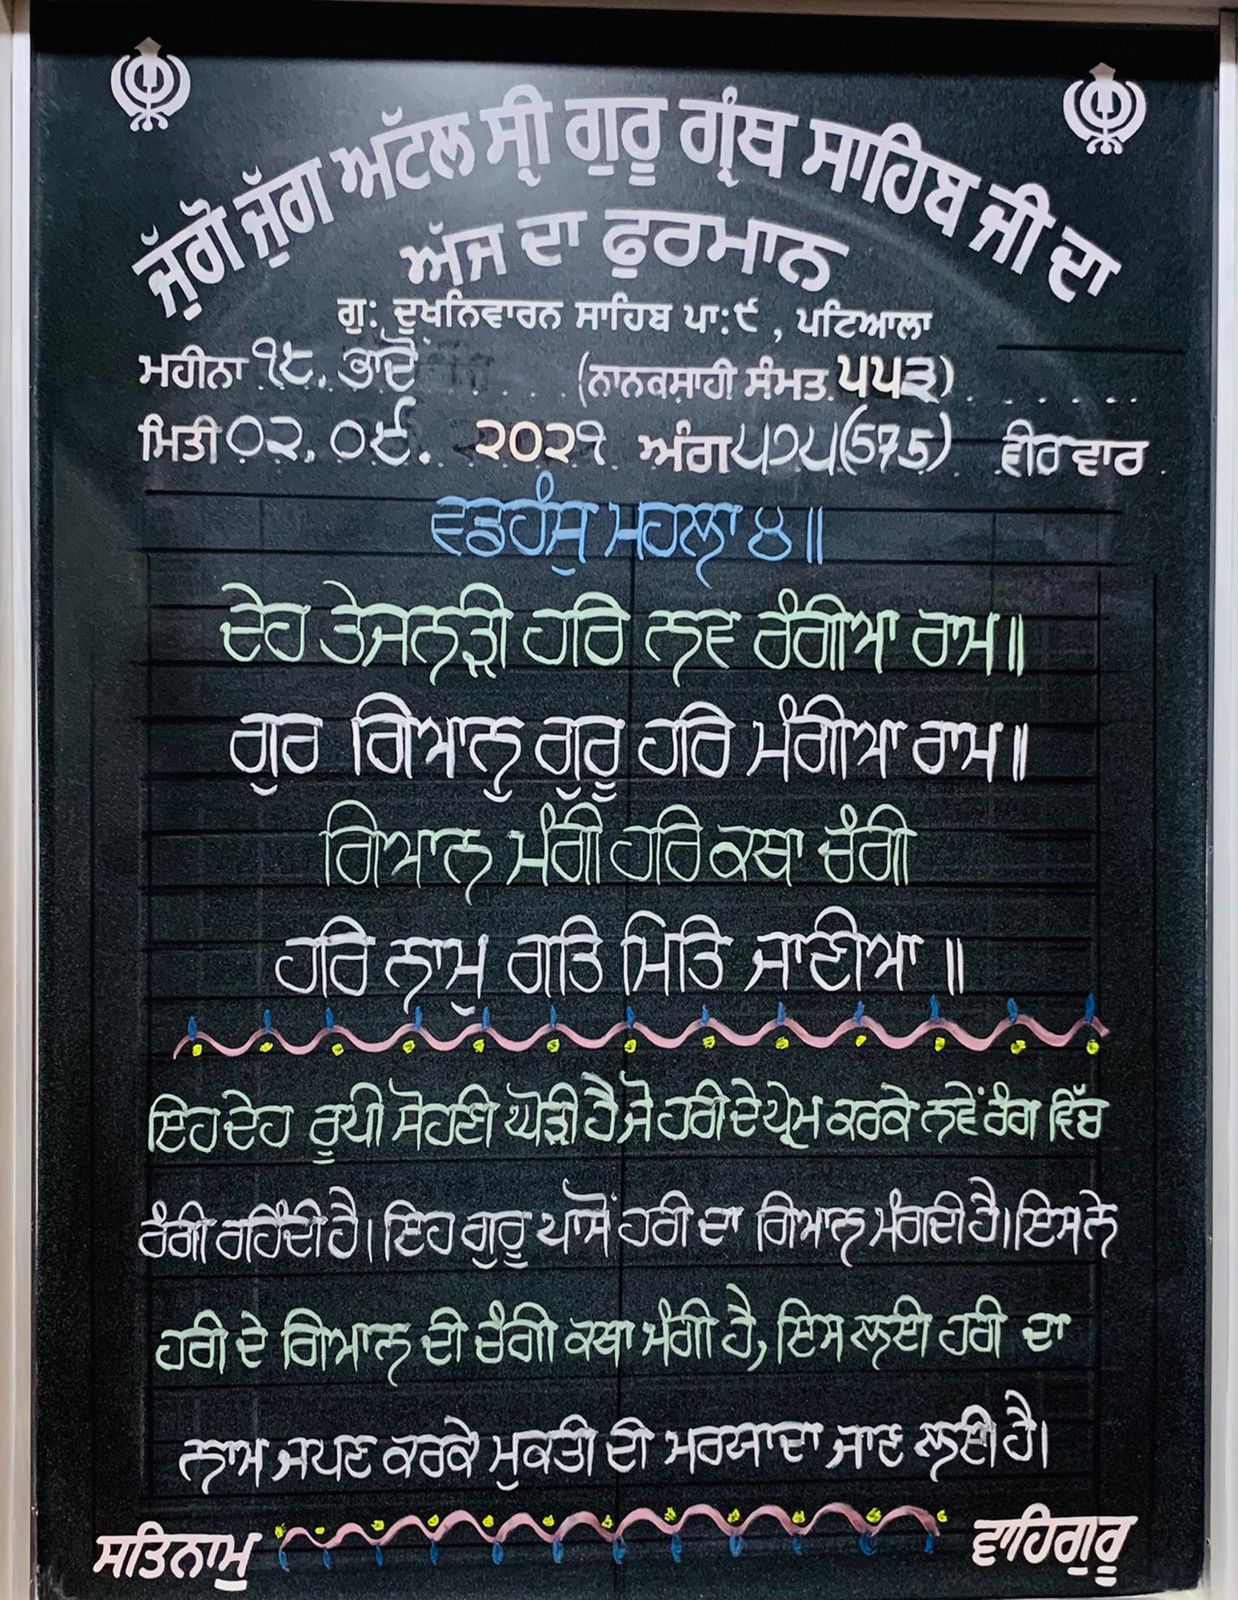 ਜੁੱਗੋ ਜੁੱਗ ਅੱਟਲ ਸ੍ਰੀ ਗੁਰੂ ਗ੍ਰੰਥ ਸਾਹਿਬ ਜੀ ਦਾ
ਅੱਜ ਦਾ ਫੁਰਮਾਨ
ਗੁ: ਦੁਖਨਿਵਾਰਨ ਸਾਹਿਬ ਪਾ:੯, ਪਟਿਆਲਾ
ਮਹੀਨਾ ੧੮. ਭਾਦੋਂ (ਨਾਨਕਸ਼ਾਹੀ ਸੰਮਤ ੫੫੩)
ਮਿਤੀ ੦੨.੦੯. ੨੦੨੧ ਅੰਗ ੫੭੫(575) ਵੀਰਵਾਰ
ਵਡਹੰਸੁ ਮਹਲਾ ੪॥
ਦੇਹ ਤੇਜਨੜੀ ਹਰਿ ਨਵ ਰੰਗੀਆ ਰਾਮ॥
ਗੁਰ ਗਿਆਨੁ ਗੁਰੂ ਹਰਿ ਮੰਗੀਆ ਰਾਮ॥
ਗਿਆਨ ਮੰਗੀ ਹਰਿ ਕਥਾ ਚੰਗੀ
ਹਰਿ ਨਾਮੁ ਗਤਿ ਮਿਤਿ ਜਾਣੀਆ ॥
ਇਹ ਦੇਹ ਰੂਪੀ ਸੋਹਣੀ ਘੋੜੀ ਹੈ, ਜੋ ਹਰੀ ਦੇ ਪ੍ਰੇਮ ਕਰਕੇ ਨਵੇਂ ਰੰਗ ਵਿੱਚ
ਰੰਗੀ ਰਹਿੰਦੀ ਹੈ। ਇਹ ਗੁਰੂ ਪਾਸੋਂ ਹਰੀ ਦਾ ਗਿਆਨ ਮੰਗਦੀ ਹੈ। ਇਸ ਨੇ
ਹਰੀ ਦੇ ਗਿਆਨ ਦੀ ਚੰਗੀ ਕਥਾ ਮੰਗੀ ਹੈ, ਇਸ ਲਈ ਹਰੀ ਦਾ
ਨਾਮ ਜਪਣ ਕਰਕੇ ਮੁਕਤੀ ਦੀ ਮਰਯਾਦਾ ਜਾਣ ਲਈ ਹੈ।
ਸਤਿਨਾਮੁ ਵਾਹਿਗੁਰੂ